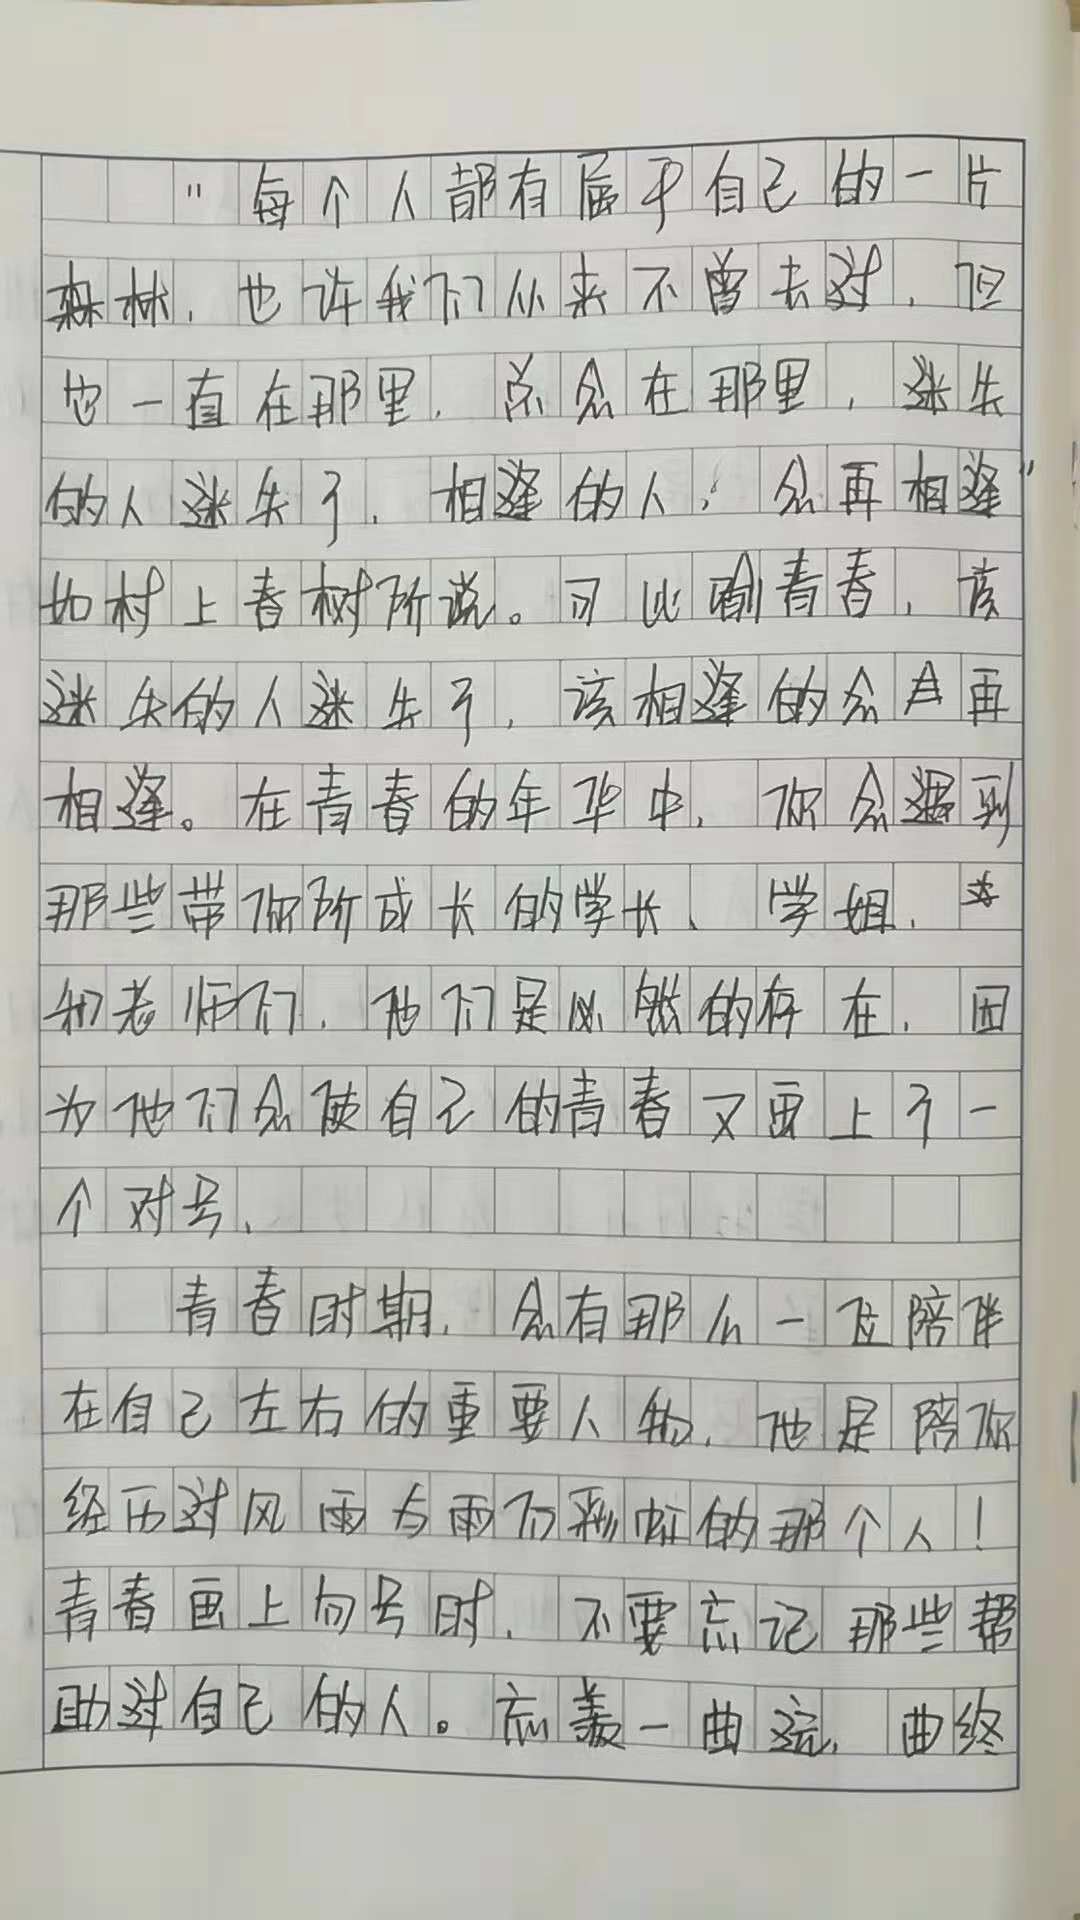 "每个人都有属于自己的一片
森林,也许我们从来不曾去过,但
它一直在那里,总会在那里,迷失
的人迷失了,相逢的人,会再相逢"
如村上春树所说。可比喻青春,该
迷失的人迷失了,该相逢的会再
相逢。在青春的年华中,你会遇到
那些带你所成长的学长、学姐,
和老师们,他们是必然的存在,因
为他们会使自己的青春又画上了一
个对号,
青春时期,会有那么一位陪伴
在自己左右的重要人物,他是陪你
经历过风雨与雨后彩虹的那个人!
青春画上句号时,不要忘记那些帮
助过自己的人。忘羡一曲远,曲终